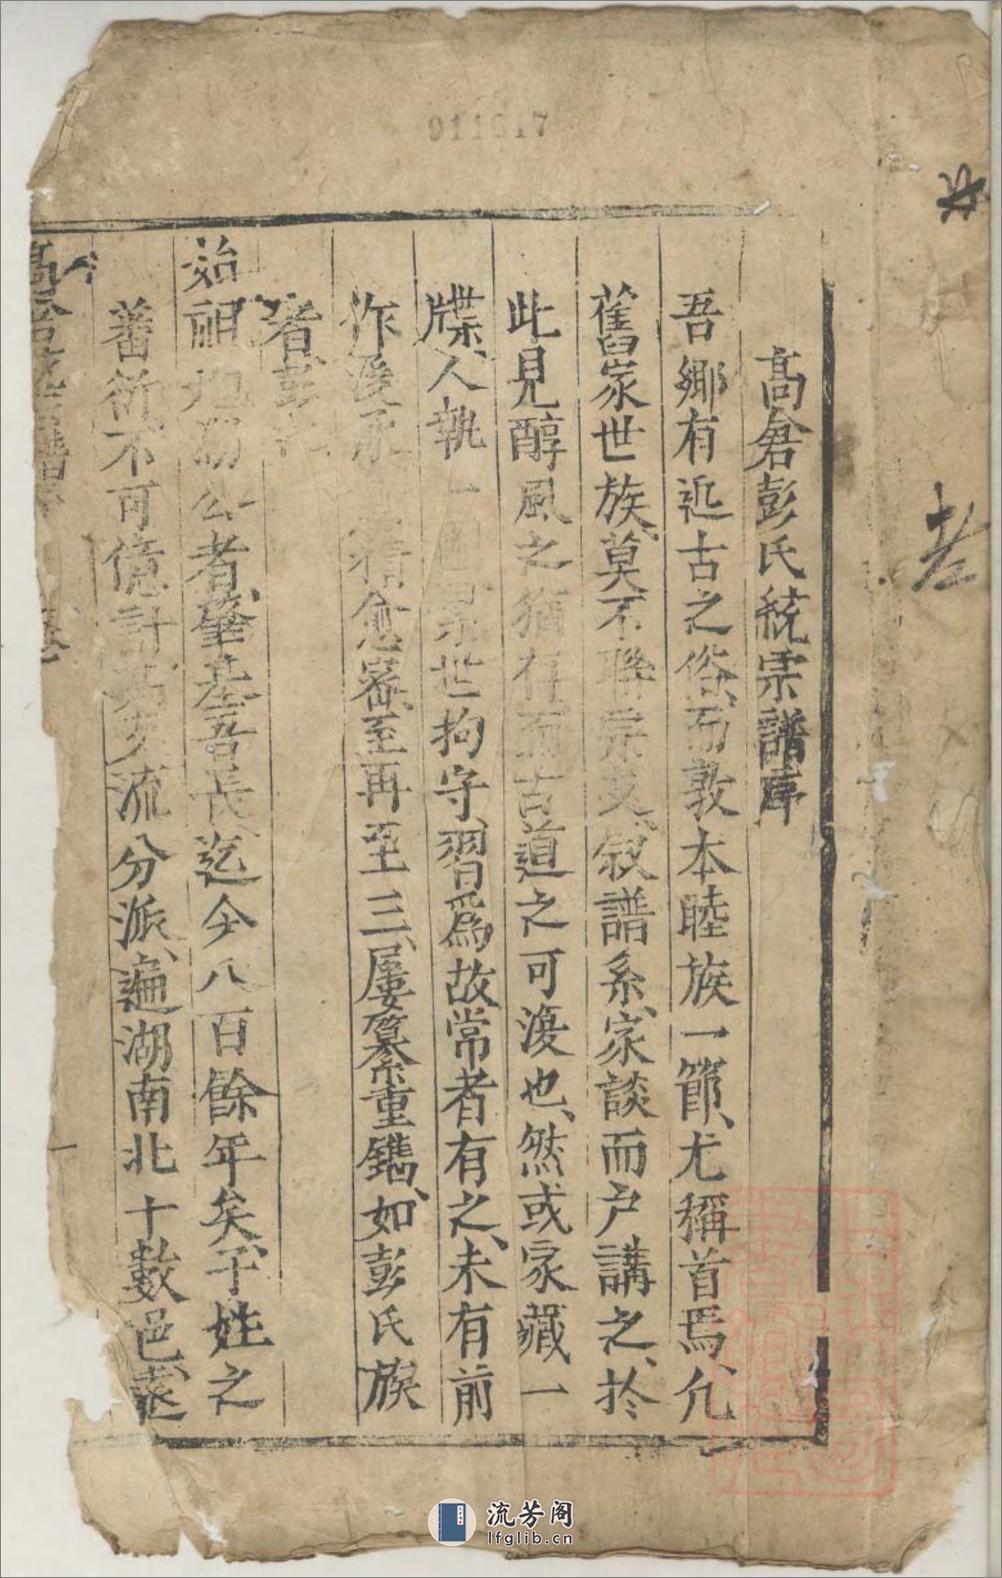 011617
高倉彭氏統宗譜序
吾鄉有近古之俗、而敦本睦族一節、尤稱首焉、凡
舊家世族、莫不聯宗支、叙譜系、家談而户講之、於
此見醇風之猶存、而古道之可復也、然或家藏一
牒、人執一 世拘守、習爲故常者有之、未有前
作後承 積愈宻、至再至三、屢纂重鐫、如彭氏族
者、彭
始祖 公者、肇基吾長、迄今八百餘年矣、子姓之
蕃衍、不可億計、 流分派、遍湖南北十數邑、遠
一
流芳阁
lfglib.cn